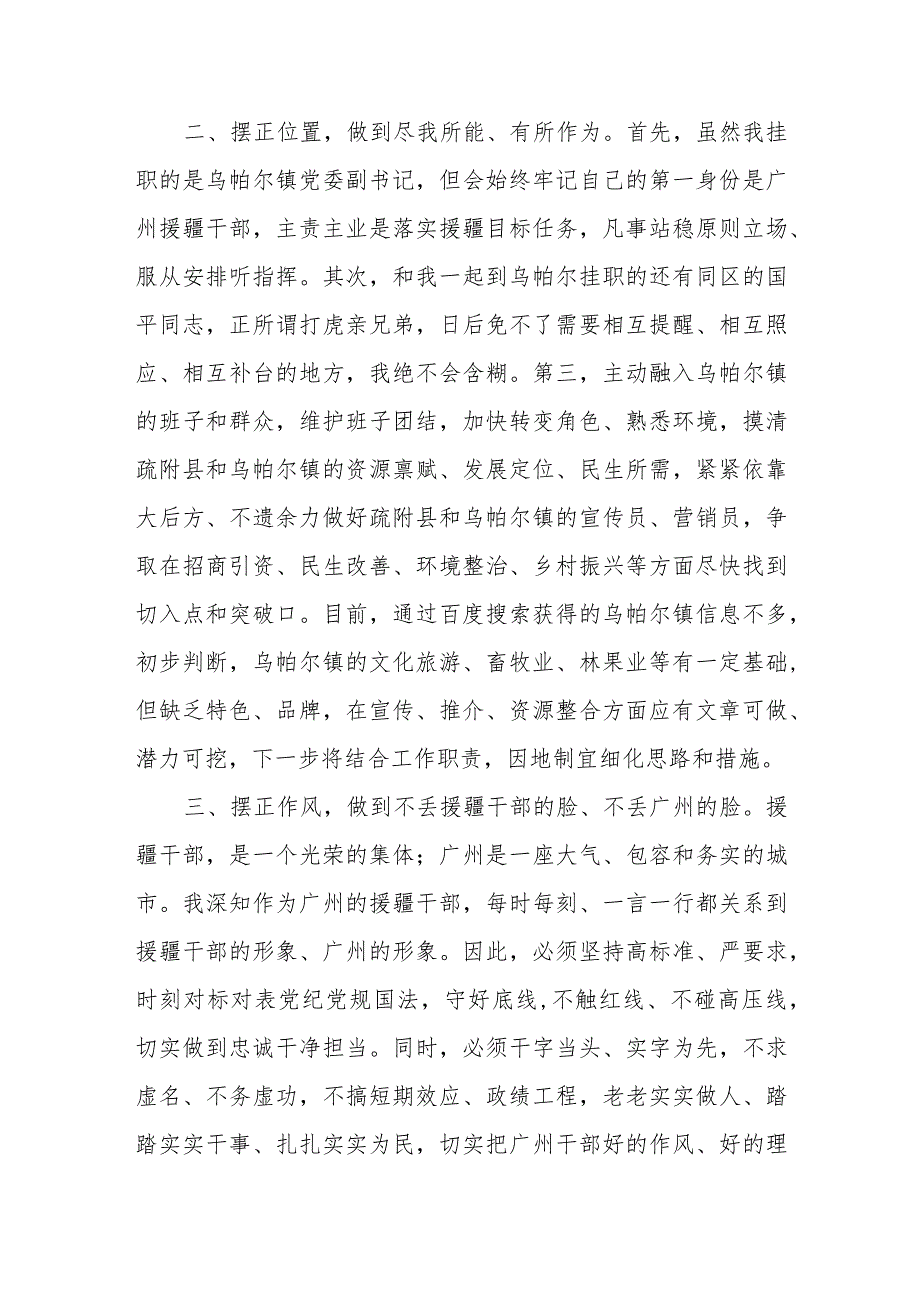 二、摆正位置，做到尽我所能、有所作为。首先，虽然我挂
职的是乌帕尔镇党委副书记，但会始终牢记自己的第一身份是广
州援疆干部，主责主业是落实援疆目标任务，凡事站稳原则立场、
服从安排听指挥。其次，和我一起到乌帕尔挂职的还有同区的国
平同志，正所谓打虎亲兄弟，日后免不了需要相互提醒、相互照
应、相互补台的地方，我绝不会含糊。第三，主动融入乌帕尔镇
的班子和群众，维护班子团结，加快转变角色、熟悉环境，摸清
疏附县和乌帕尔镇的资源禀赋、发展定位、民生所需，紧紧依靠
大后方、不遗余力做好疏附县和乌帕尔镇的宣传员、营销员，争
取在招商引资、民生改善、环境整治、乡村振兴等方面尽快找到
切入点和突破口。目前，通过百度搜索获得的乌帕尔镇信息不多，
初步判断，乌帕尔镇的文化旅游、畜牧业、林果业等有一定基础，
但缺乏特色、品牌，在宣传、推介、资源整合方面应有文章可做、
潜力可挖，下一步将结合工作职责，因地制宜细化思路和措施。
三、摆正作风，做到不丢援疆干部的脸、不丢广州的脸。援
疆干部，是一个光荣的集体；广州是一座大气、包容和务实的城
市。我深知作为广州的援疆干部，每时每刻、一言一行都关系到
援疆干部的形象、广州的形象。因此，必须坚持高标准、严要求，
时刻对标对表党纪党规国法，守好底线,不触红线、不碰高压线，
切实做到忠诚干净担当。同时，必须干字当头、实字为先，不求
虚名、不务虚功，不搞短期效应、政绩工程，老老实实做人、踏
踏实实干事、扎扎实实为民，切实把广州干部好的作风、好的理